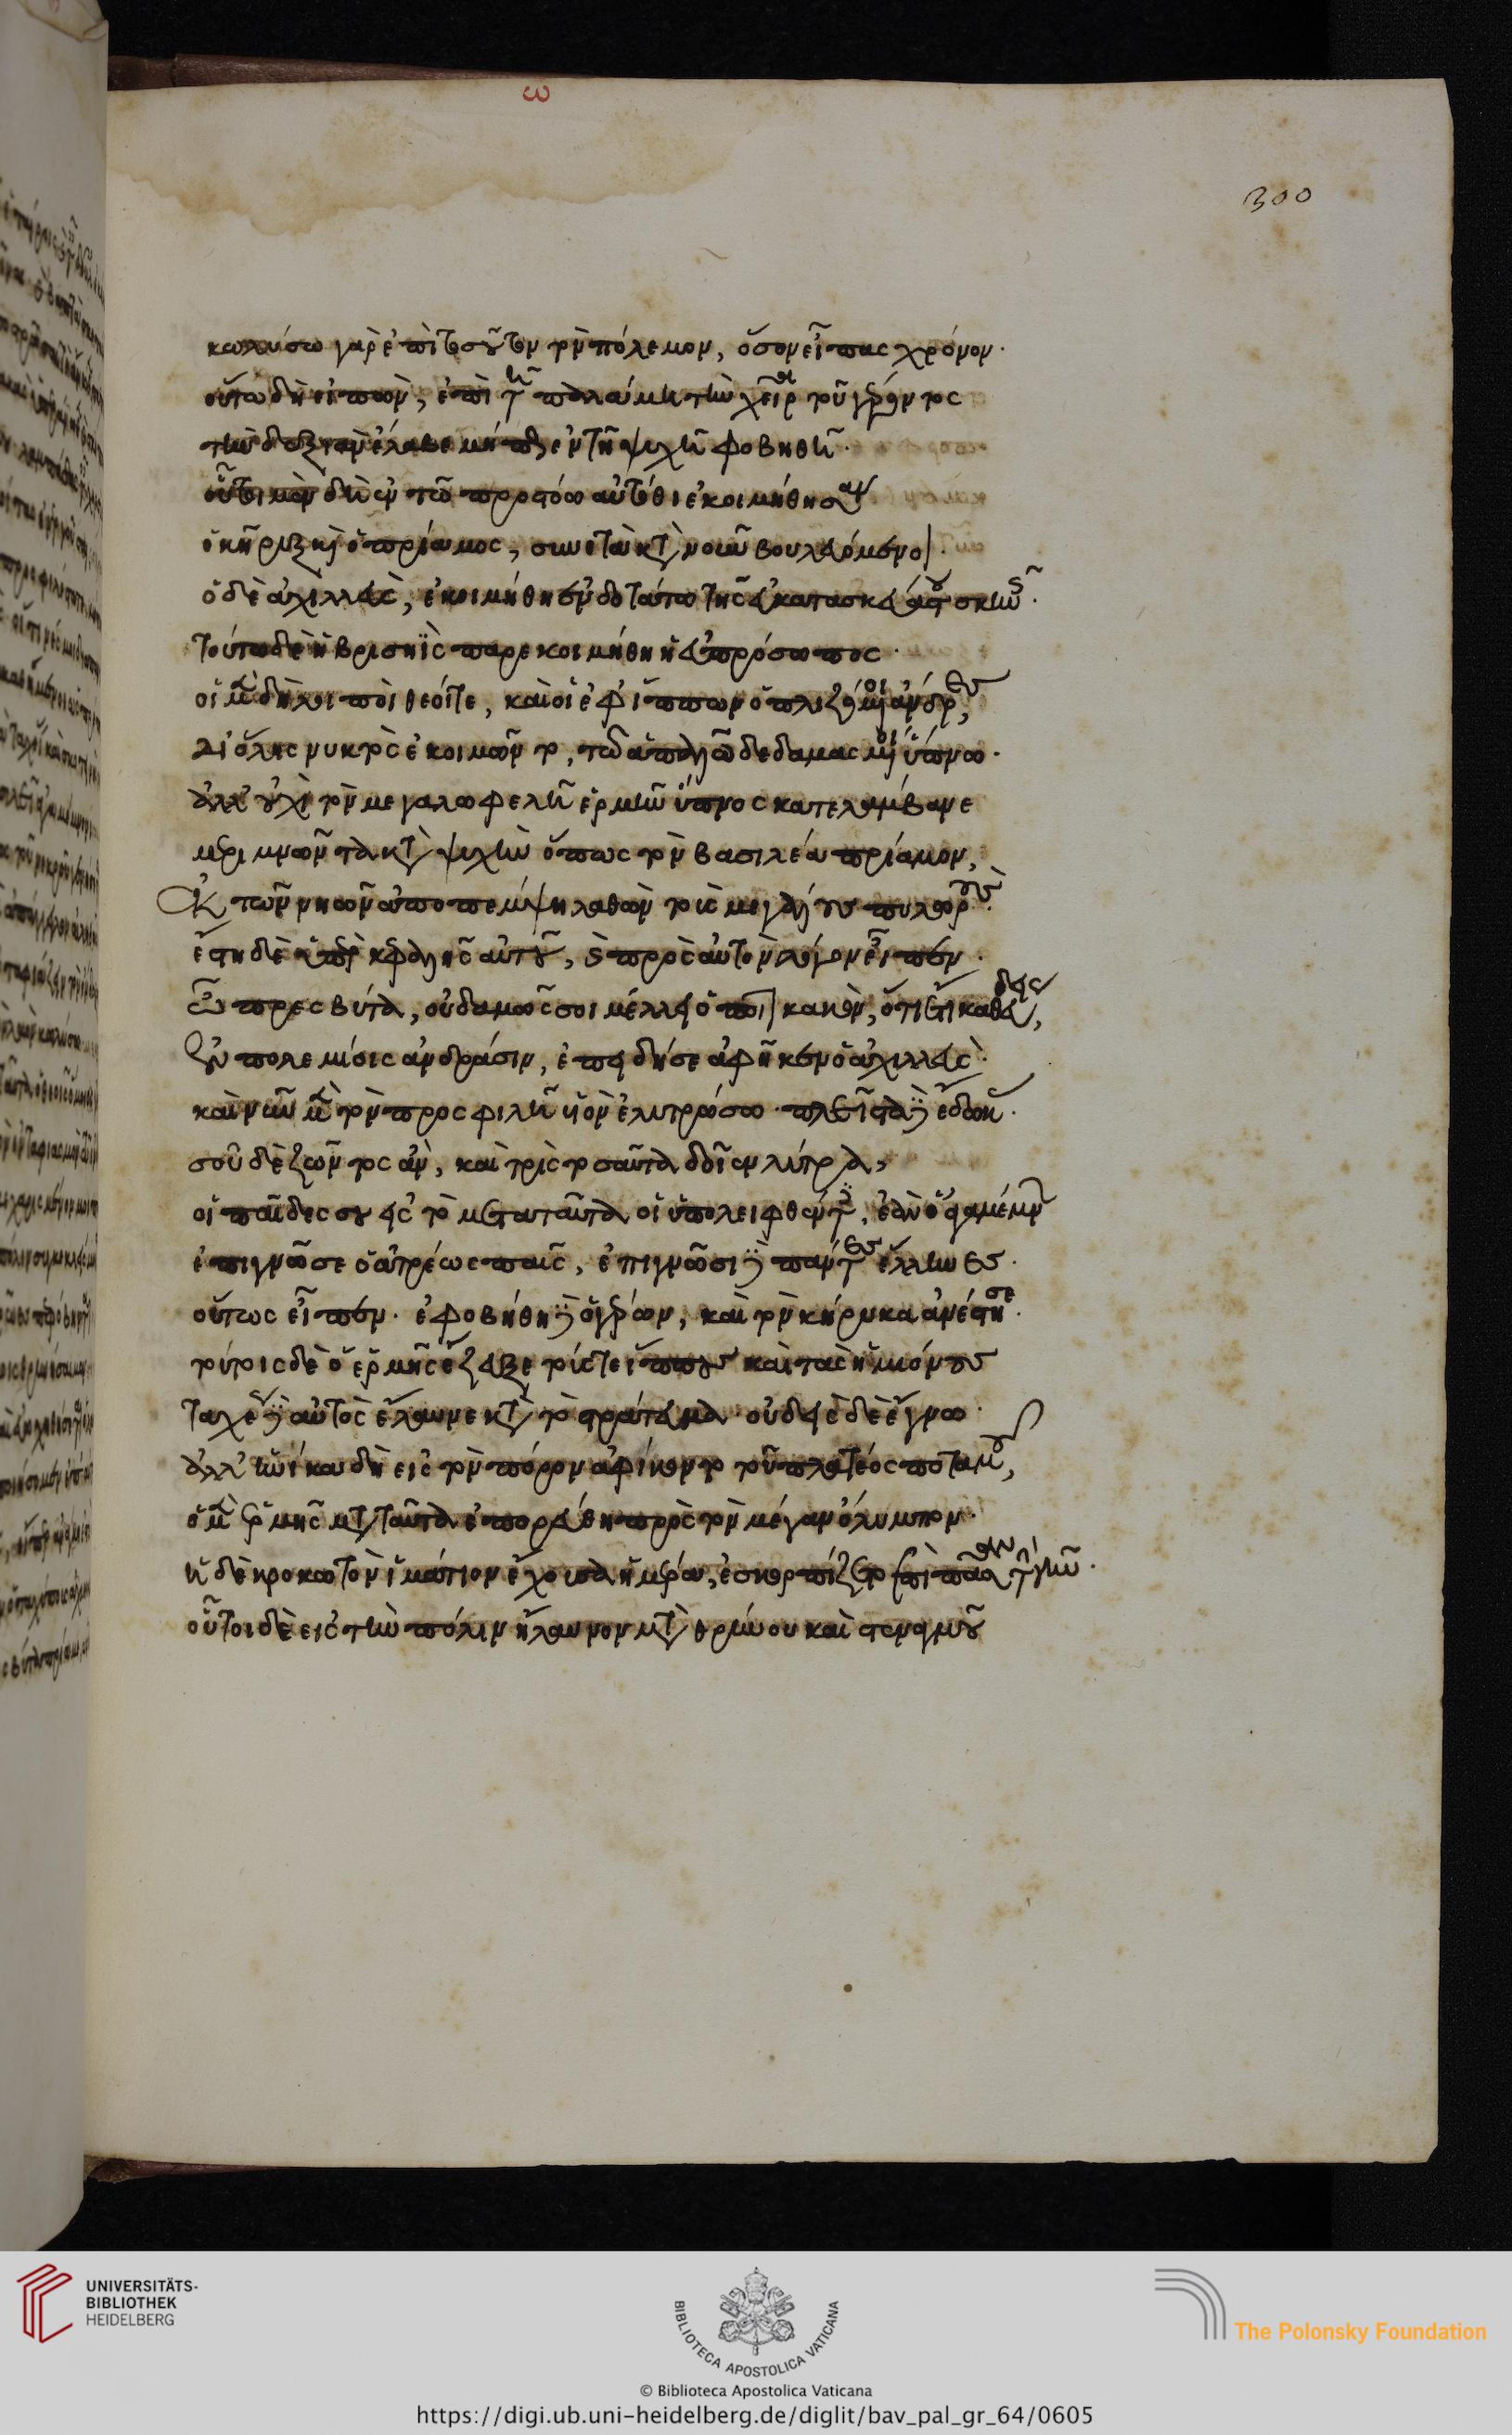 300
κωλύσω γὰρ ἐπὶ τοσοῦτον τὸν πόλεμον, ὅσον εἶπας χρόνον.
οὕτω δὴ εἰπὼν, ἐπὶ τῆ παλάμη τὴν χεῖρα τοῦ γέροντος
τὴν δεξιὰν ἔλαβε μήπως ἐν τῆ ψυχῆ φοβηθῆ.
οὗτοι μὲν δὴ ἐν τῶ προπόδω αὐτόθι ἐκοιμήθησαν
ὁ κῆρυξ καὶ ὁ πρίαμος, συνετὰ κατὰ νοῦν βουλευόμενοι.
ὁ δὲ ἀχιλλεὺς, ἐκοιμήθη ἐνδοτάτω τῆς εὐκατασκευάστου σκηνῆς.
τούτω δὲ ἡ βρισηῒς παρεκοιμήθη ἡ εὐπρόσωπος.
οἱ μὲν δὴ λοιποὶ θεοίτε, καὶ οἱ ἐφ' ἵππων ὁπλιζόμενοι ἄνδρες,
δι' ὅλης νυκτὸς ἐκοιμῶντο, τῶ ἁπαλῶ δεδαμασμένοι ὕπνω.
ἀλλ' οὐχὶ τὸν μεγαλωφελῆ ἑρμῆν ὕπνος κατελάμβανε
μεριμνῶντα κατὰ ψυχὴν ὅπως τὸν βασιλέα πρίαμον,
ἐκ τῶν νηῶν ἀποπέμψη λαθὼν τοὺς μεγάλους πυλωρούς.
ἔστη δὲ ὑπὲρ κεφαλῆς αὐτοῦ, καὶ πρὸς αὐτὸν λόγον εἶπεν.
ὦ πρεσβύτα, οὐδαμῶς σοι μέλλει ὅποι κακόν, ὅτι ἔτι καθεύδεις,
ἐν πολεμίοις ἀνδράσιν, ἐπειδή σε ἀφῆκεν ὁ ἀχιλλεύς.
καὶ νῦν μὲν τὸν προσφιλῆ υἱὸν ἐλυτρώσω. πλεῖστα δὲ ἔδωκας.
σοῦ δὲ ζῶντος ἂν, καὶ τρὶς τοσαῦτα δοῖεν λύτρα,
οἱ παῖδες σου εἰς τὸ μετὰ ταῦτα οἱ ὑπολειφθέντες, ἐὰν ὁ ἀγαμέμνων
ἐπιγνῶ σε ὁ ἀτρέως παῖς, ἐπιγνῶσι δὲ πάντες ἕλληνες.
οὕτως εἶπεν. ἐφοβήθη δὲ ὁ γέρων, καὶ τὸν κήρυκα ἀνέστησε.
τούτοις δὲ ὁ ἑρμῆς ἔζευξε τούς τε ἵππους καὶ τὰς ἡμιόνους
ταχέως δὲ αὐτὸς ἔλαυνε κατὰ τὸ στράτευμα. οὐδεὶς δὲ ἔγνω.
ἀλλ' ἡνίκα δὴ εἰς τὸν πόρον ἀφίκοντο τοῦ πλατέος ποταμοῦ,
ὁ μὲν ἑρμῆς μετὰ ταῦτα ἐπορεύθη πρὸς τὸν μέγαν ὄλυμπον.
ἡ δὲ κροκωτὸν ἱμάτιον ἔχουσα ἡμέρα, ἐσκορπίζετο ἐπὶ πᾶσαν τὴν γῆν.
οὗτοι δὲ εἰς τὴν πόλιν ἤλαυνον μετὰ θρήνου καὶ στεναγμοῦ
UNIVERSITÄTS-
BIBLIOTHEK
HEIDELBERG
BIBLIOTECA APOSTOLICA VATICANA
The Polonsky Foundation
© Biblioteca Apostolica Vaticana
https://digi.ub.uni-heidelberg.de/diglit/bav_pal_gr_64/0605